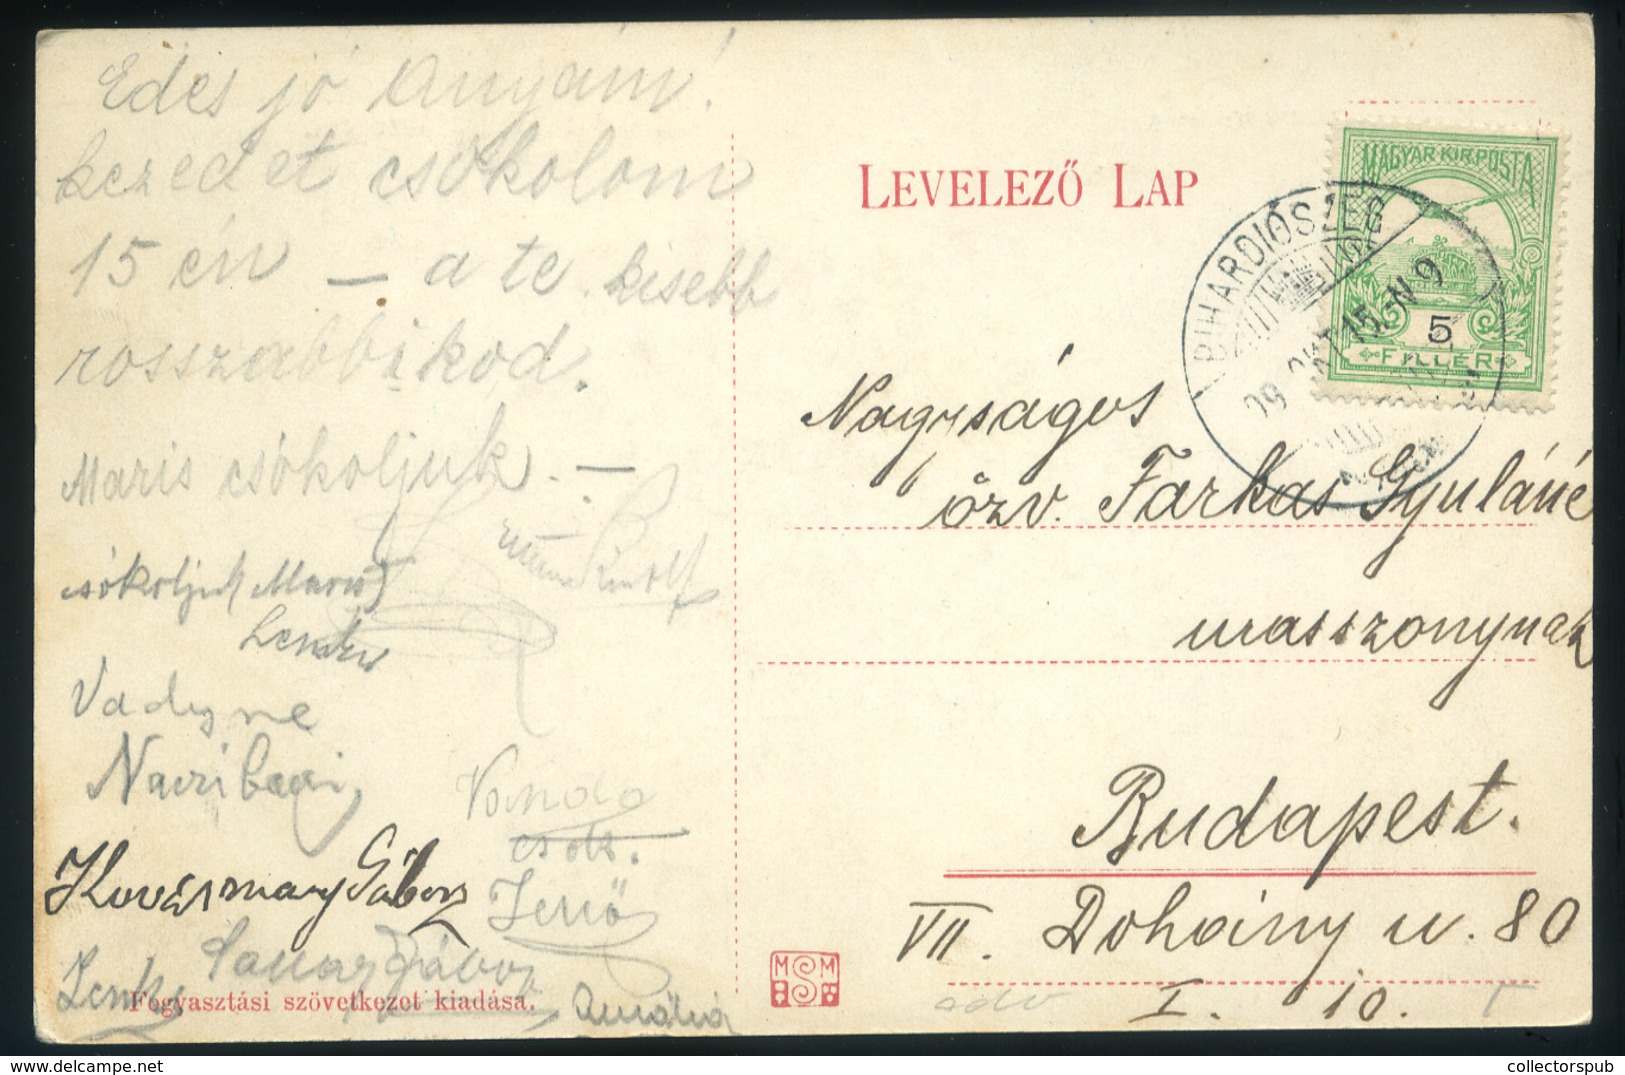 Edes jó Anyám!
kezedet csókolom
15 én – a te kisebb
rosszabbikod.
Maris csókoljuk. –
csókoljuk Maris
Lenke
Rudolf
Vadyne
Vanda
csók.
Jenő
Gábor
Lenke
Amália
Fogyasztási szövetkezet kiadása.
LEVELEZŐ LAP
MAGYAR KIR. POSTA
5
FILLÉR
BIHARDIÓSZEG
09 OKT 15.-N 9
Nagyságos
özv. Farkas Gyuláné
urasszonynak
Budapest.
VII. Dohány u. 80
I. 10.
M S M
collectorspub.com